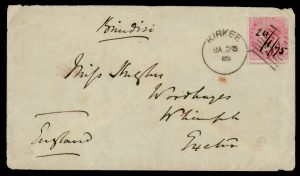 Brindisi
KIRKEE
JA 28
Miss Hughes
Woodhayes
Whimple
Exeter
England